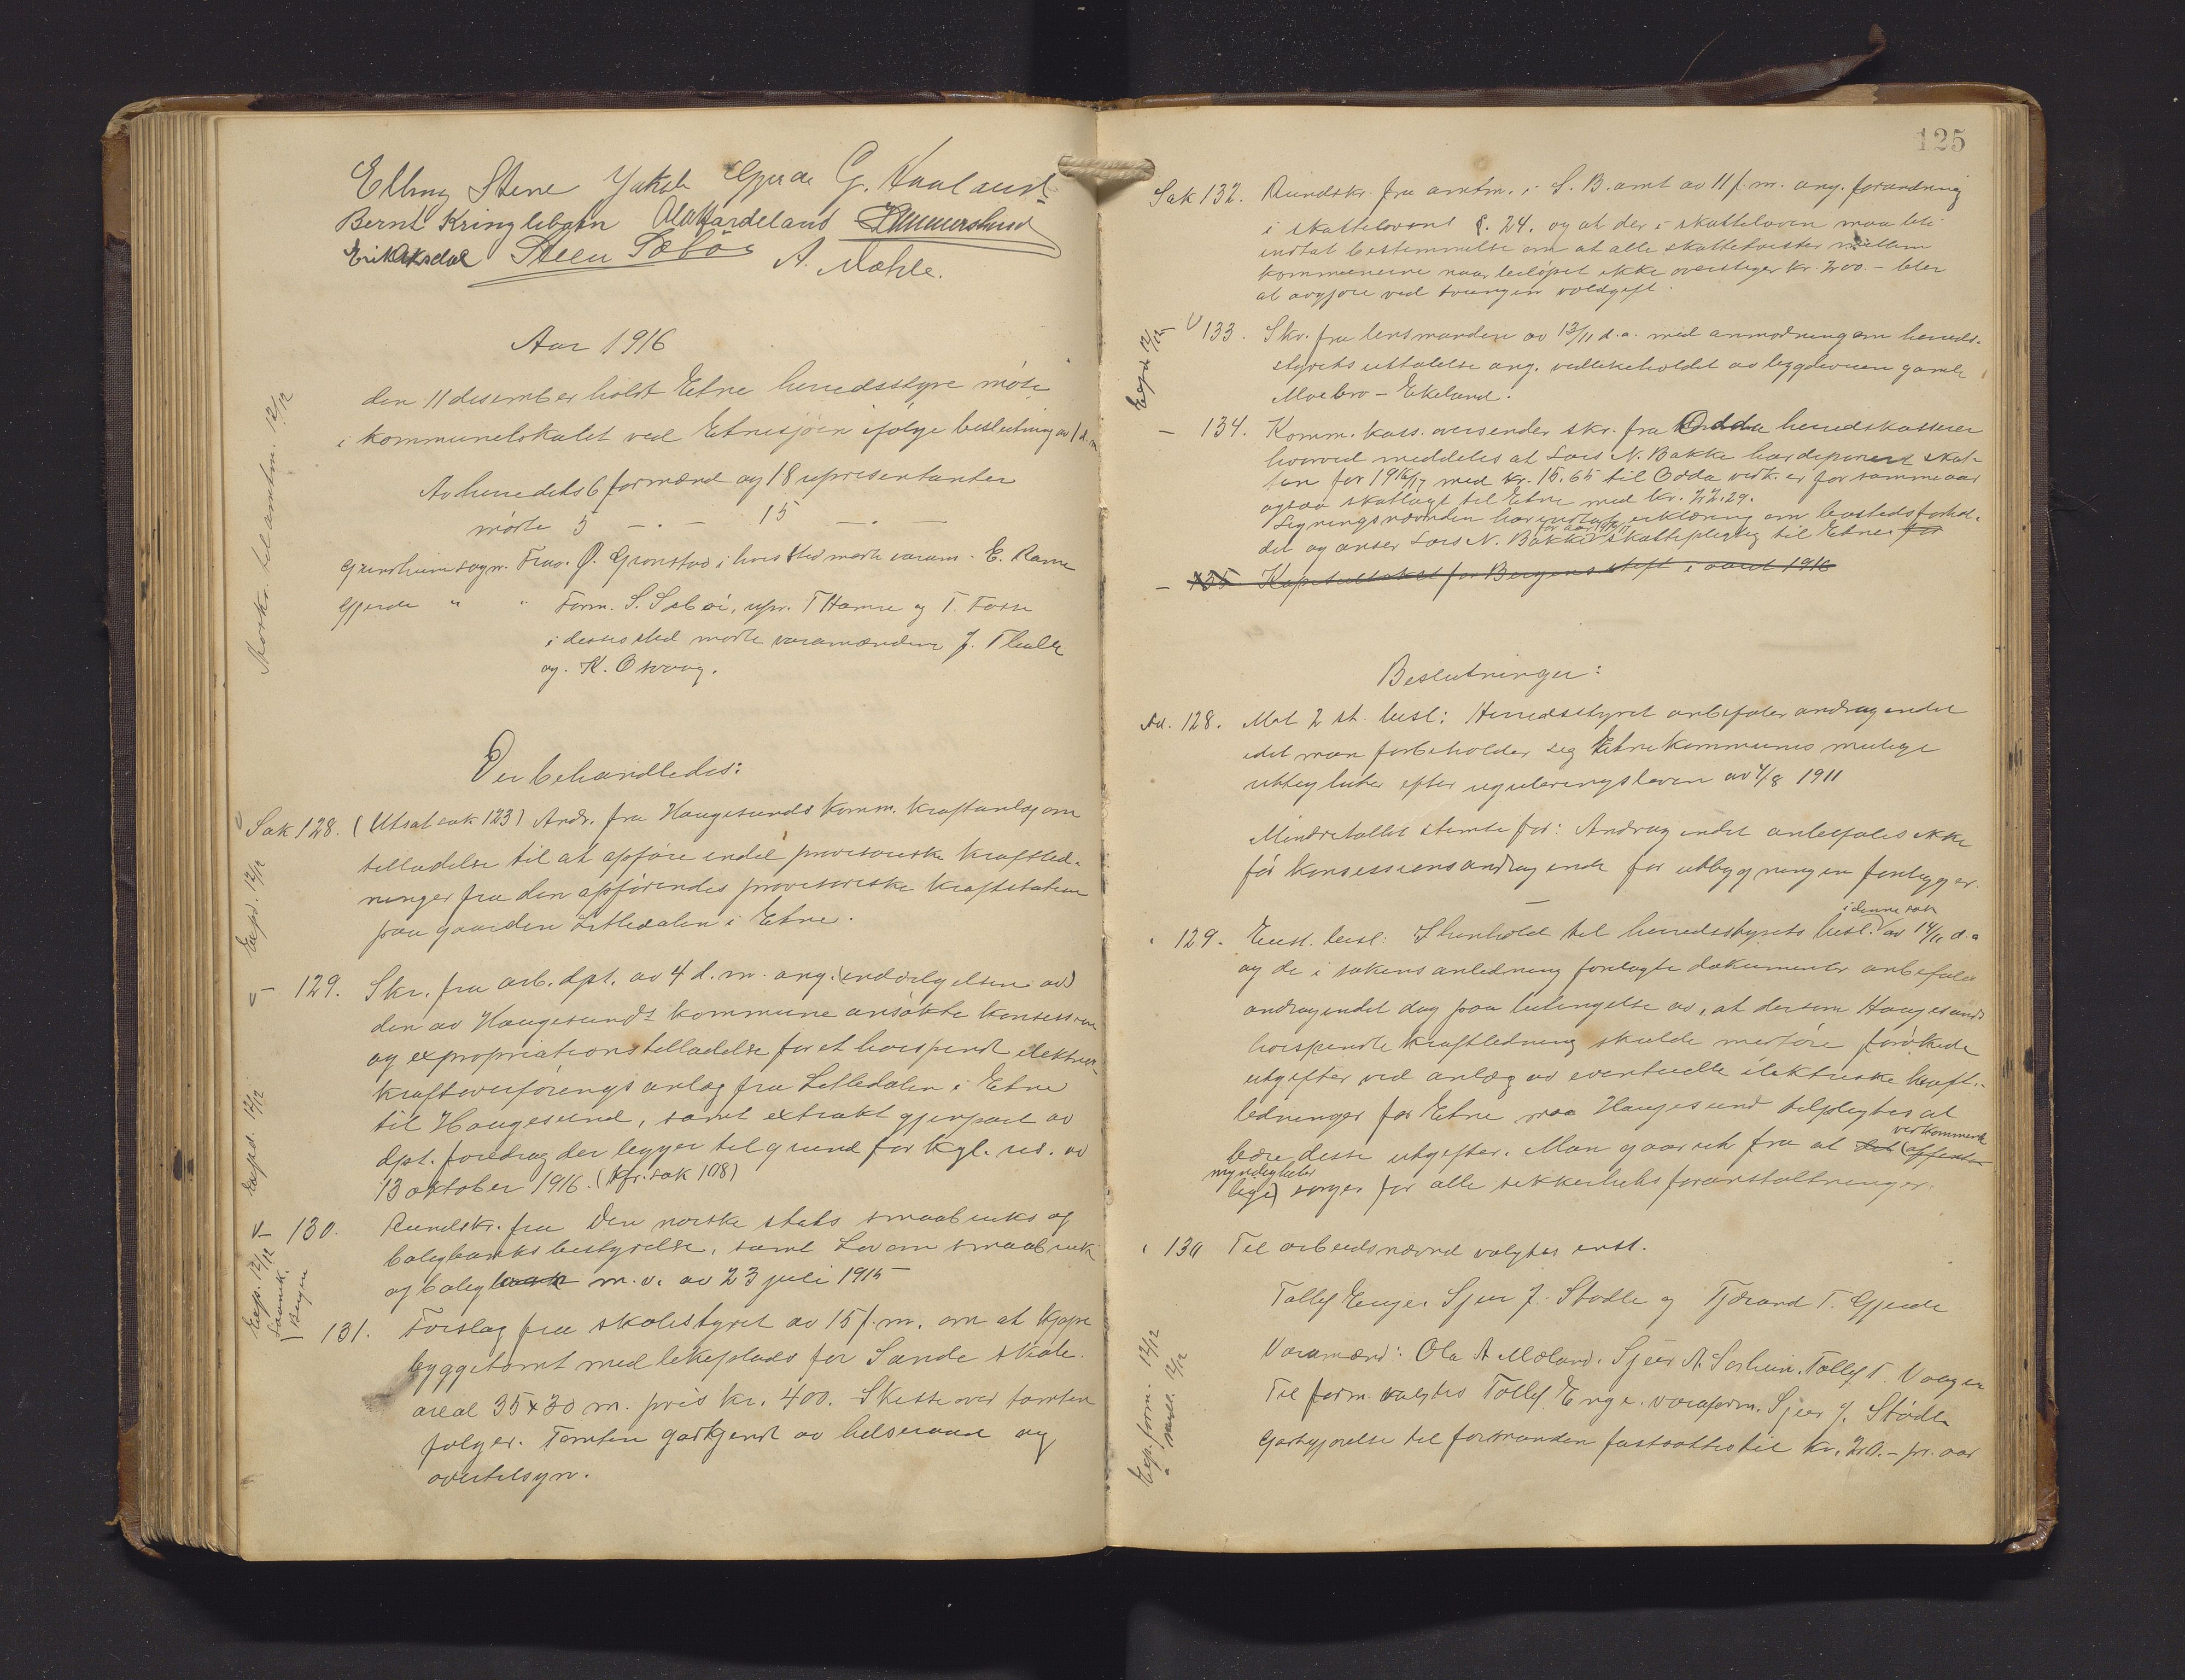 Elling Stene Jakob Gjerde G. Haaland
Bernt Kringlebotn Ola Hardeland
Erik Aksdal Steen Sæbö A. Mæhle.
Aar 1916
den 11 desember holdt Etne herredsstyre möte
i kommunelokalet ved Etnesjöen ifölge beslutning av 1 d.m.
Av herredets 6 formænd og 18 representanter
mötte 5 — . — 15 — . —
Grindheim sogn. Frav. Ø. Grønstad i hvis sted mødte varam. E. Rame
Gjerde " " Form. S. Sæböi, repr. T Hamre og T. Fosse
i desses sted mødte varamændene J. Thule
og K. Osvaag.
Norsk. tel. amtm. 12/12
Der behandledes:
Sak 128. (Utsat sak 123) Andr. fra Haugesunds komm. kraftanlæg om
tilladelse til at opföre endel provisoriske kraftled-
ninger fra den opförendes provisoriske kraftstation
paa gaarden Litledalen i Etne.
Exped. 12/12
— 129. Skr. fra arb. dpt. av 4 d.m. ang. (meddelelsen av)
den av Haugesunds kommune ansökte konsession
og expropriationstilladelse for et höispendt elektrisk
kraftoverföringsanlæg fra Litledalen i Etne
til Haugesund, samt extrakt gjenpart av
dpt. foredrag der ligger til grund for Kgl. res. av
13 oktober 1916. (Kfr. sak 108)
Exped. 12/12
— 130. Rundskr. fra Den norske stats smaabruks og
boligbanks bestyrelse, samt Lov om smaabruk
og boligbank m.v. av 23 juli 1915
Exp. 12/12
Bergen
131. Forslag fra skolestyret av 15 f.m. om at kjøpe
byggetomt med lekeplads for Sande skole.
areal 35 x 30 m. pris kr. 400. Skisse over tomten
følger. Tomten godkjendt av helseraad og
overtilsyn.
125
Sak 132. Rundskr. fra amtm. i S. B. amt av 11 f.m. ang. forandring
i skattelovens §. 24. og at der i skatteloven maa bli
indtat bestemmelse om at alle skattetvister mellem
kommunerne naar beløpet ikke overstiger kr. 200.- blir
at avgjøre ved tvungen voldgift.
Exped 12/12
133. Skr. fra lensmanden av 13/11 d.a. med anmodning om herreds-
styrets uttalelse ang. vedlikeholdet av bygdeveien gamle
Moebro - Ekeland.
— 134. Komm. kass. oversender skr. fra Odda herredskasserer
hvorved meddeles at Lars N. Bakke har deponert skat-
ten for 1916/17 med kr. 15.65 til Odda vedk. er for samme aar
ogsaa skatlagt til Etne med kr. 22.29.
Ligningsnævnden har indhentet erklæring om bostedsforhol-
det og anser Lars N. Bakke for aar 1916/17 skattepligtig til Etne for
— 135 Kapiteltakst for Bergens stift i aaret 1916
Beslutninger:
Ad. 128. Mot 2 st. besl: Herredsstyret anbefaler andragendet
idet man forbeholder sig Etne kommunes mulige
rettigheter efter reguleringsloven av 4/8 1911
Mindretallet stemte for: Andragendet anbefales ikke
før konsessionsandragende for utbygningen foreligger.
129. Enst. besl: I henhold til herredsstyrets besl. i denne sak av 14/11 d.a
og de i sakens anledning forelagte dokumenter anbefales
andragendet dog paa betingelse av, at dersom Haugesunds
høispendte kraftledning skulde medføre forøkede
utgifter ved anlæg av eventuelle elektriske kraft-
ledninger for Etne maa Haugesund tilpligtes at
bære disse utgifter. Man gaar ut fra at det (vedkommende offent-
lige) myndigheter sørger for alle sikkerhetsforanstaltninger.
130 Til arbeidsnævnd valgtes enst.
Tollef Enge, Sjur J. Stødle og Tjerand T. Gjerde
Varamænd: Ola A Mæland, Sjur A. Sørheim, Tollef T. Vaagen
Til form. valgtes Tollef Enge. varaform. Sjur J. Stødle
Godtgjørelse til formanden fastsættes til kr. 20.- pr. aar
Exp. form. 12/12